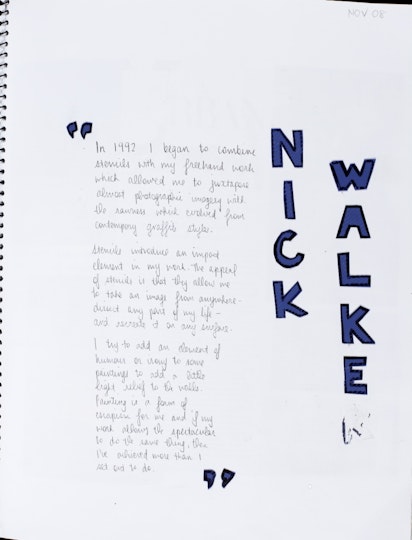 NOV 08
NICK
WALKE
"
In 1992 I began to combine
stencils with my freehand work
which allowed me to juxtapose
almost photographic imagery with
the rawness which evolved from
contempory graffiti styles.
Stencils introduce an impact
element in my work. The appeal
of stencils is that they allow me
to take an image from anywhere -
disect any part of my life -
and recreate it on any surface.
I try to add an element of
humour or irony to some
paintings to add a little
light relief to the walls.
Painting is a form of
escapism for me and if my
work allows the spectacular
to do the same thing, then
I've achieved more than I
set out to do.
"